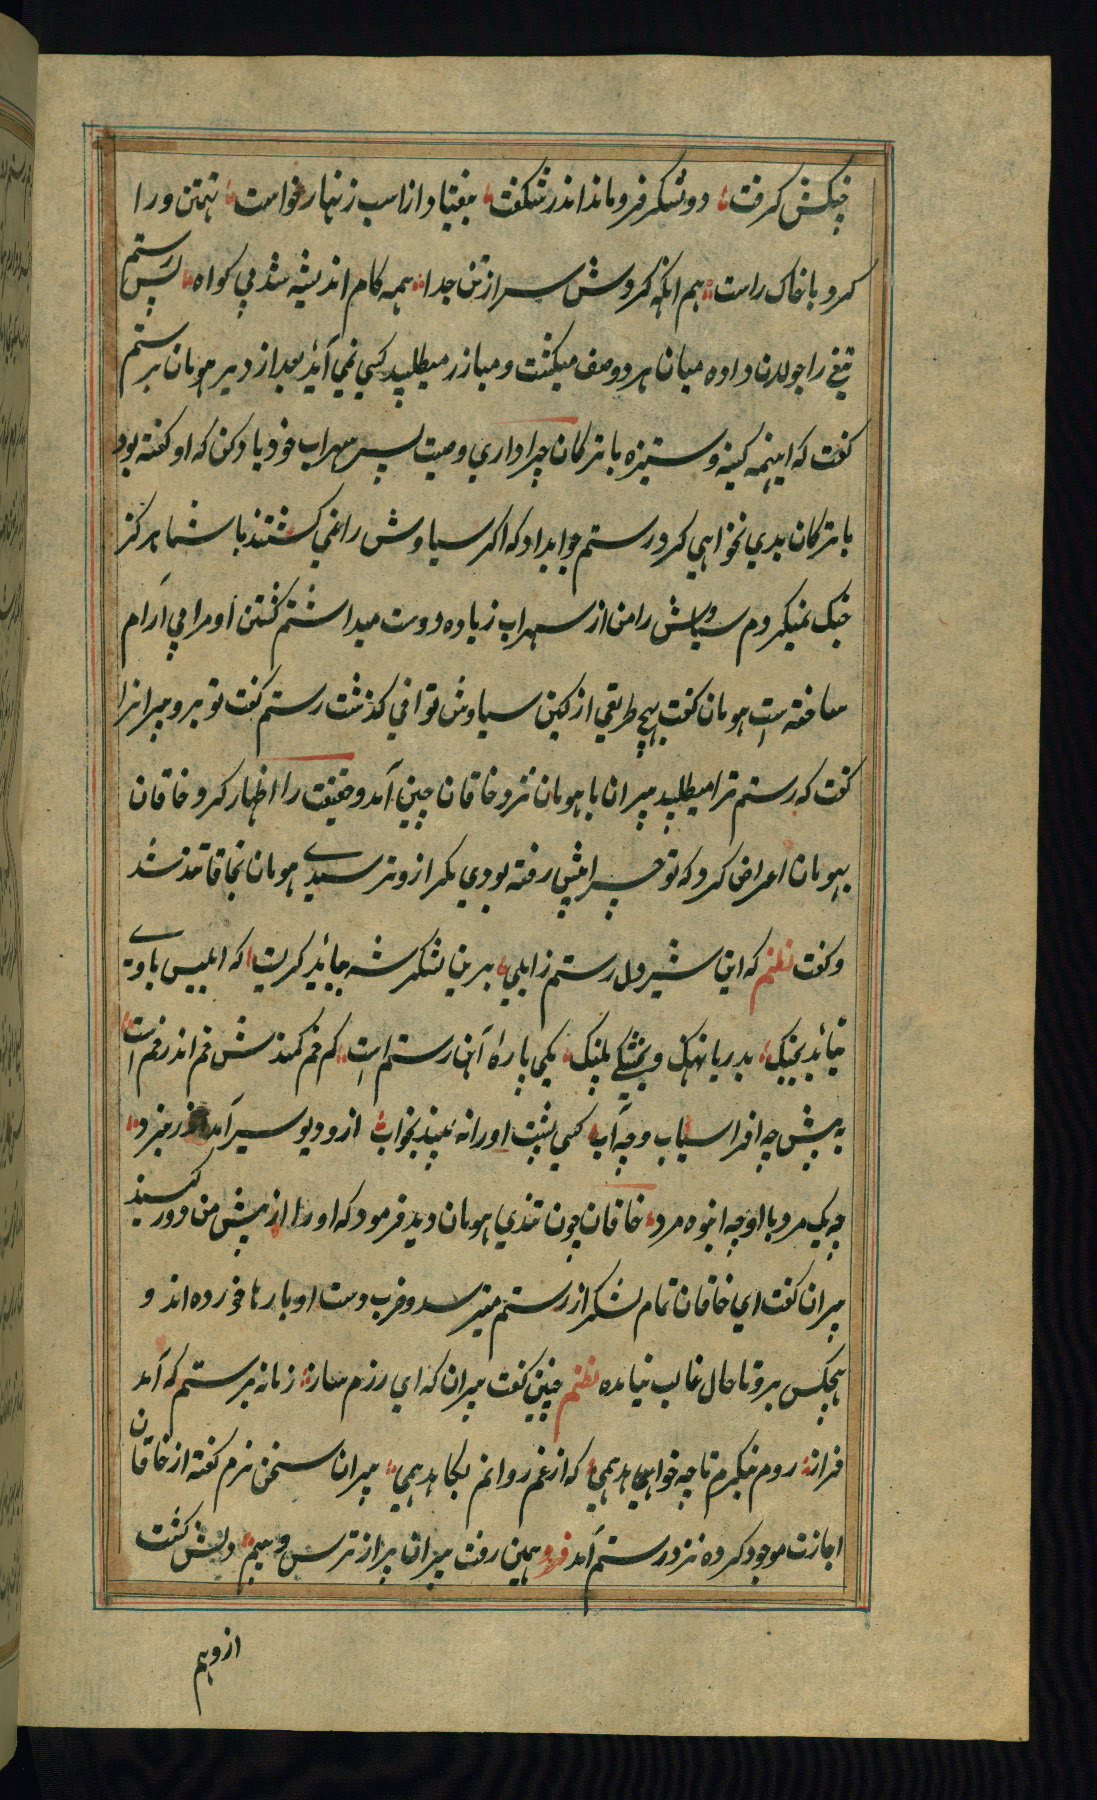 بچنگش گرفت دو لشکر فرو ماند اندر شکفت بیفتاد از اسب زنهار خواست تهمتن ورا
کرد با خاک راست هم انگه کردش سر از تن جدا همه کام اندیشه شد بی کواه پس رستم
تیغ را جولان داده میان هر دو صف میکشت و مبارز میطلبید کسی نمی آید بعد از دیر هومان برستم
کفت که اینهمه کینه و ستیزه با ترکان چرا داری وصیت پسر سهراب خود یاد کن که او کفته بود
با ترکان بدی نخواهی کرد رستم جوابداد که اکر سیاوش را نمی کشتند با شما هرکز
جنک نمیکردم سیاوش را من از سهراب زیاده دوست میداشتم کشتن او مرا بی آرام
ساخته است هومان کفت بهیچ طریقی از کین سیاوش توانی کذشت رستم کفت تو برو پیرانرا
کفت که رستم ترا میطلبد پیران با هومان نزد خاقان چین آمد و حقیقت را اظهار کرد خاقان
بهومان اعراض کرد که تو چرا پیش رفته بودی مکر ازو ترسیدی هومان بخاقان تند شد
و کفت نظم که این شیر دل رستم زابلی برین لشکر شه بباید کریست که ابلیس با وی
نیاید بجنک بدریا نهنک و بخشکی پلنک یکی پاره آهن رستم است کم خم کمندش خم اندر خم است
به پیش چه افراسیاب و چه آب کسی پشت اورا نه بیند بخواب ازو دیو سیر آمد اندر نبرد
چه یک مرد با او چه انبوه مرد خاقان چون تندی هومان دید فرمود که اورا از پیش من دور کنید
پیران کفت ای خاقان تمام لشکر از رستم میترسد و ضرب دست او بارها خورده اند و
هیچکس برو تا حال غالب نیامده نظم چنین کفت پیران که ای رزم ساز زمانه برستم که آمد
فراز روم بنکرم تا چه خواهد همی که از غم روانم بکاهد همی پیران سخن نرم کفته از خاقان
اجازت موجود کرده نزد رستم آمد فرد همین رفت پیران پر از ترس و بیم دلش کشت
از وهم